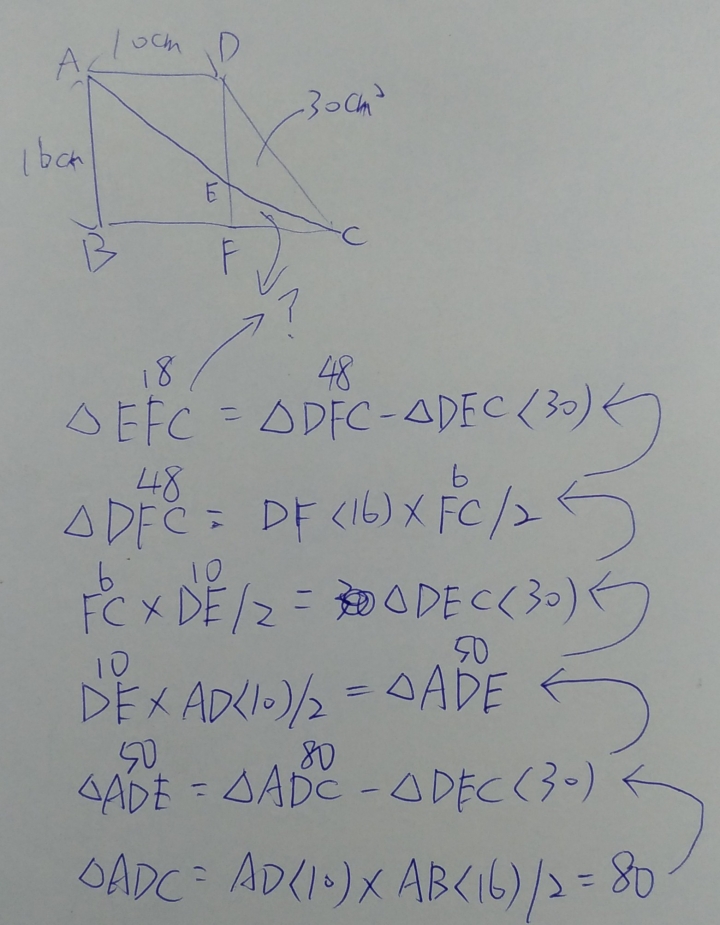 10cm
A D
30cm²
16cm
E
B F C
?
18 48
△EFC = △DFC - △DEC <30)
48 6
△DFC = DF <16) × FC /2
6 10
FC × DE /2 = △DEC <30)
10 50
DE × AD <10)/2 = △ADE
50 80
△ADE = △ADC - △DEC <30)
△ADC = AD <10) × AB <16)/2 = 80